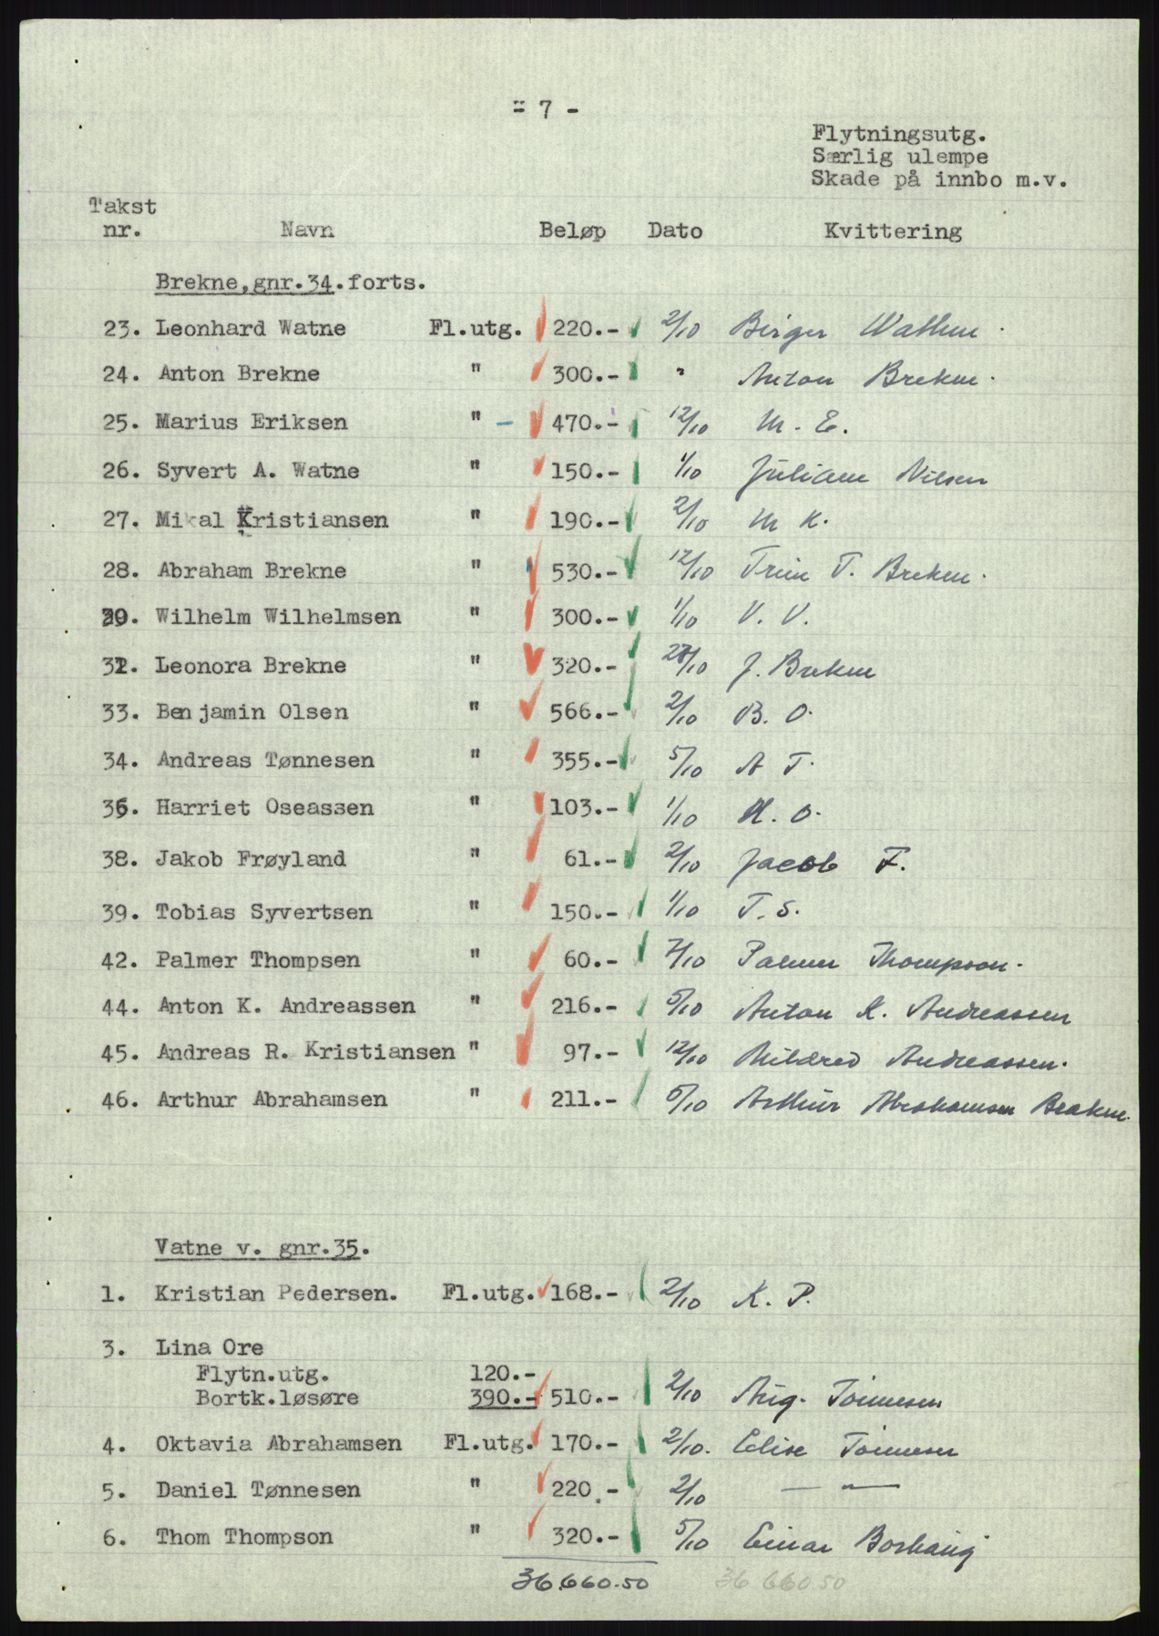 - 7 -
Flytningsutg.
Særlig ulempe
Skade på innbo m.v.
Takst
nr. Navn Beløp Dato Kvittering
Brekne, gnr.34.forts.
23. Leonhard Watne Fl.utg. 220.- 2/10 Birger Wathne.
24. Anton Brekne " 300.- " Anton Brekne.
25. Marius Eriksen " - 470.- 12/10 M. E.
26. Syvert A. Watne " 150.- 1/10 Juliane Nilsen
27. Mikal Kristiansen " 190.- 2/10 M K.
28. Abraham Brekne " 530.- 12/10 T. Brekne.
Wilhelm Wilhelmsen " 300.- 1/10 V. V.
Leonora Brekne " 320.- J. Brekne
33. Benjamin Olsen " 566.- 2/10 B. O.
34. Andreas Tønnesen " 355.- 5/10 A T.
Harriet Oseassen " 103.- 1/10 H. O.
38. Jakob Frøyland " 61.- 2/10 Jacob F.
39. Tobias Syvertsen " 150.- 1/10 T. S.
42. Palmer Thompsen " 60.- Palmer Thompson.
44. Anton K. Andreassen " 216.- 5/10 Anton K. Andreassen
45. Andreas R. Kristiansen " 97.- 12/10 Mildred Andreassen.
46. Arthur Abrahamsen " 211.- 5/10 Arthur Abrahamsen Brekne.
Vatne v. gnr.35.
1. Kristian Pedersen. Fl.utg. 168.- 2/10 K. P.
3. Lina Ore
Flytn.utg. 120.-
Bortk.løsøre 390.- 510.- 2/10 Aug. Tønnesen
4. Oktavia Abrahamsen Fl.utg. 170.- 2/10. Elise Tønnesen
5. Daniel Tønnesen " 220.- 2/10 — —
6. Thom Thompson " 320.- 5/10 Einar Borhaug
36.660.50 36 660 50